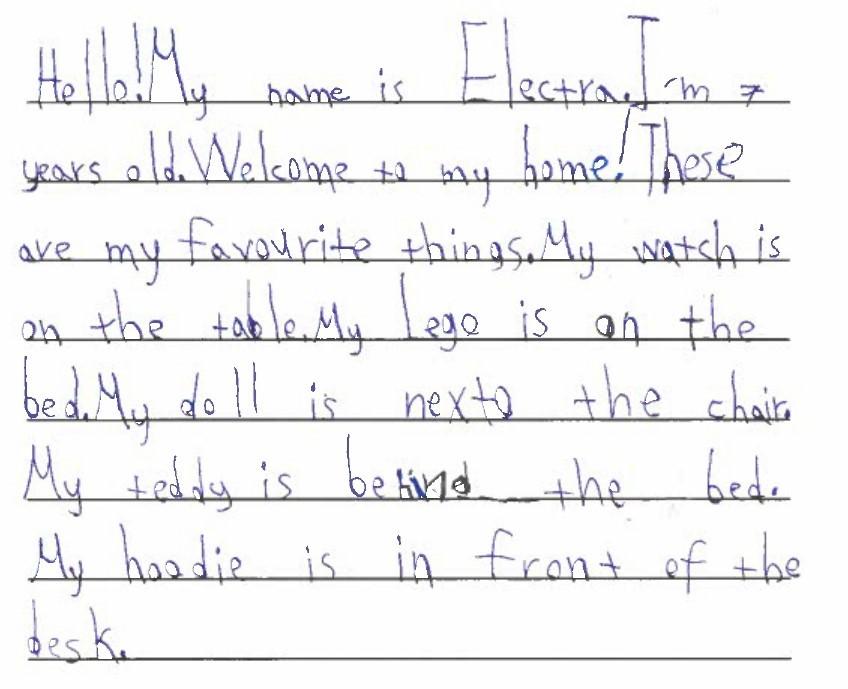 Hello! My name is Electra. I'm 7
years old. Welcome to my home! These
are my favourite things. My watch is
on the table. My Lego is on the
bed. My doll is nexto the chair.
My teddy is behind the bed.
My hoodie is in front of the
desk.